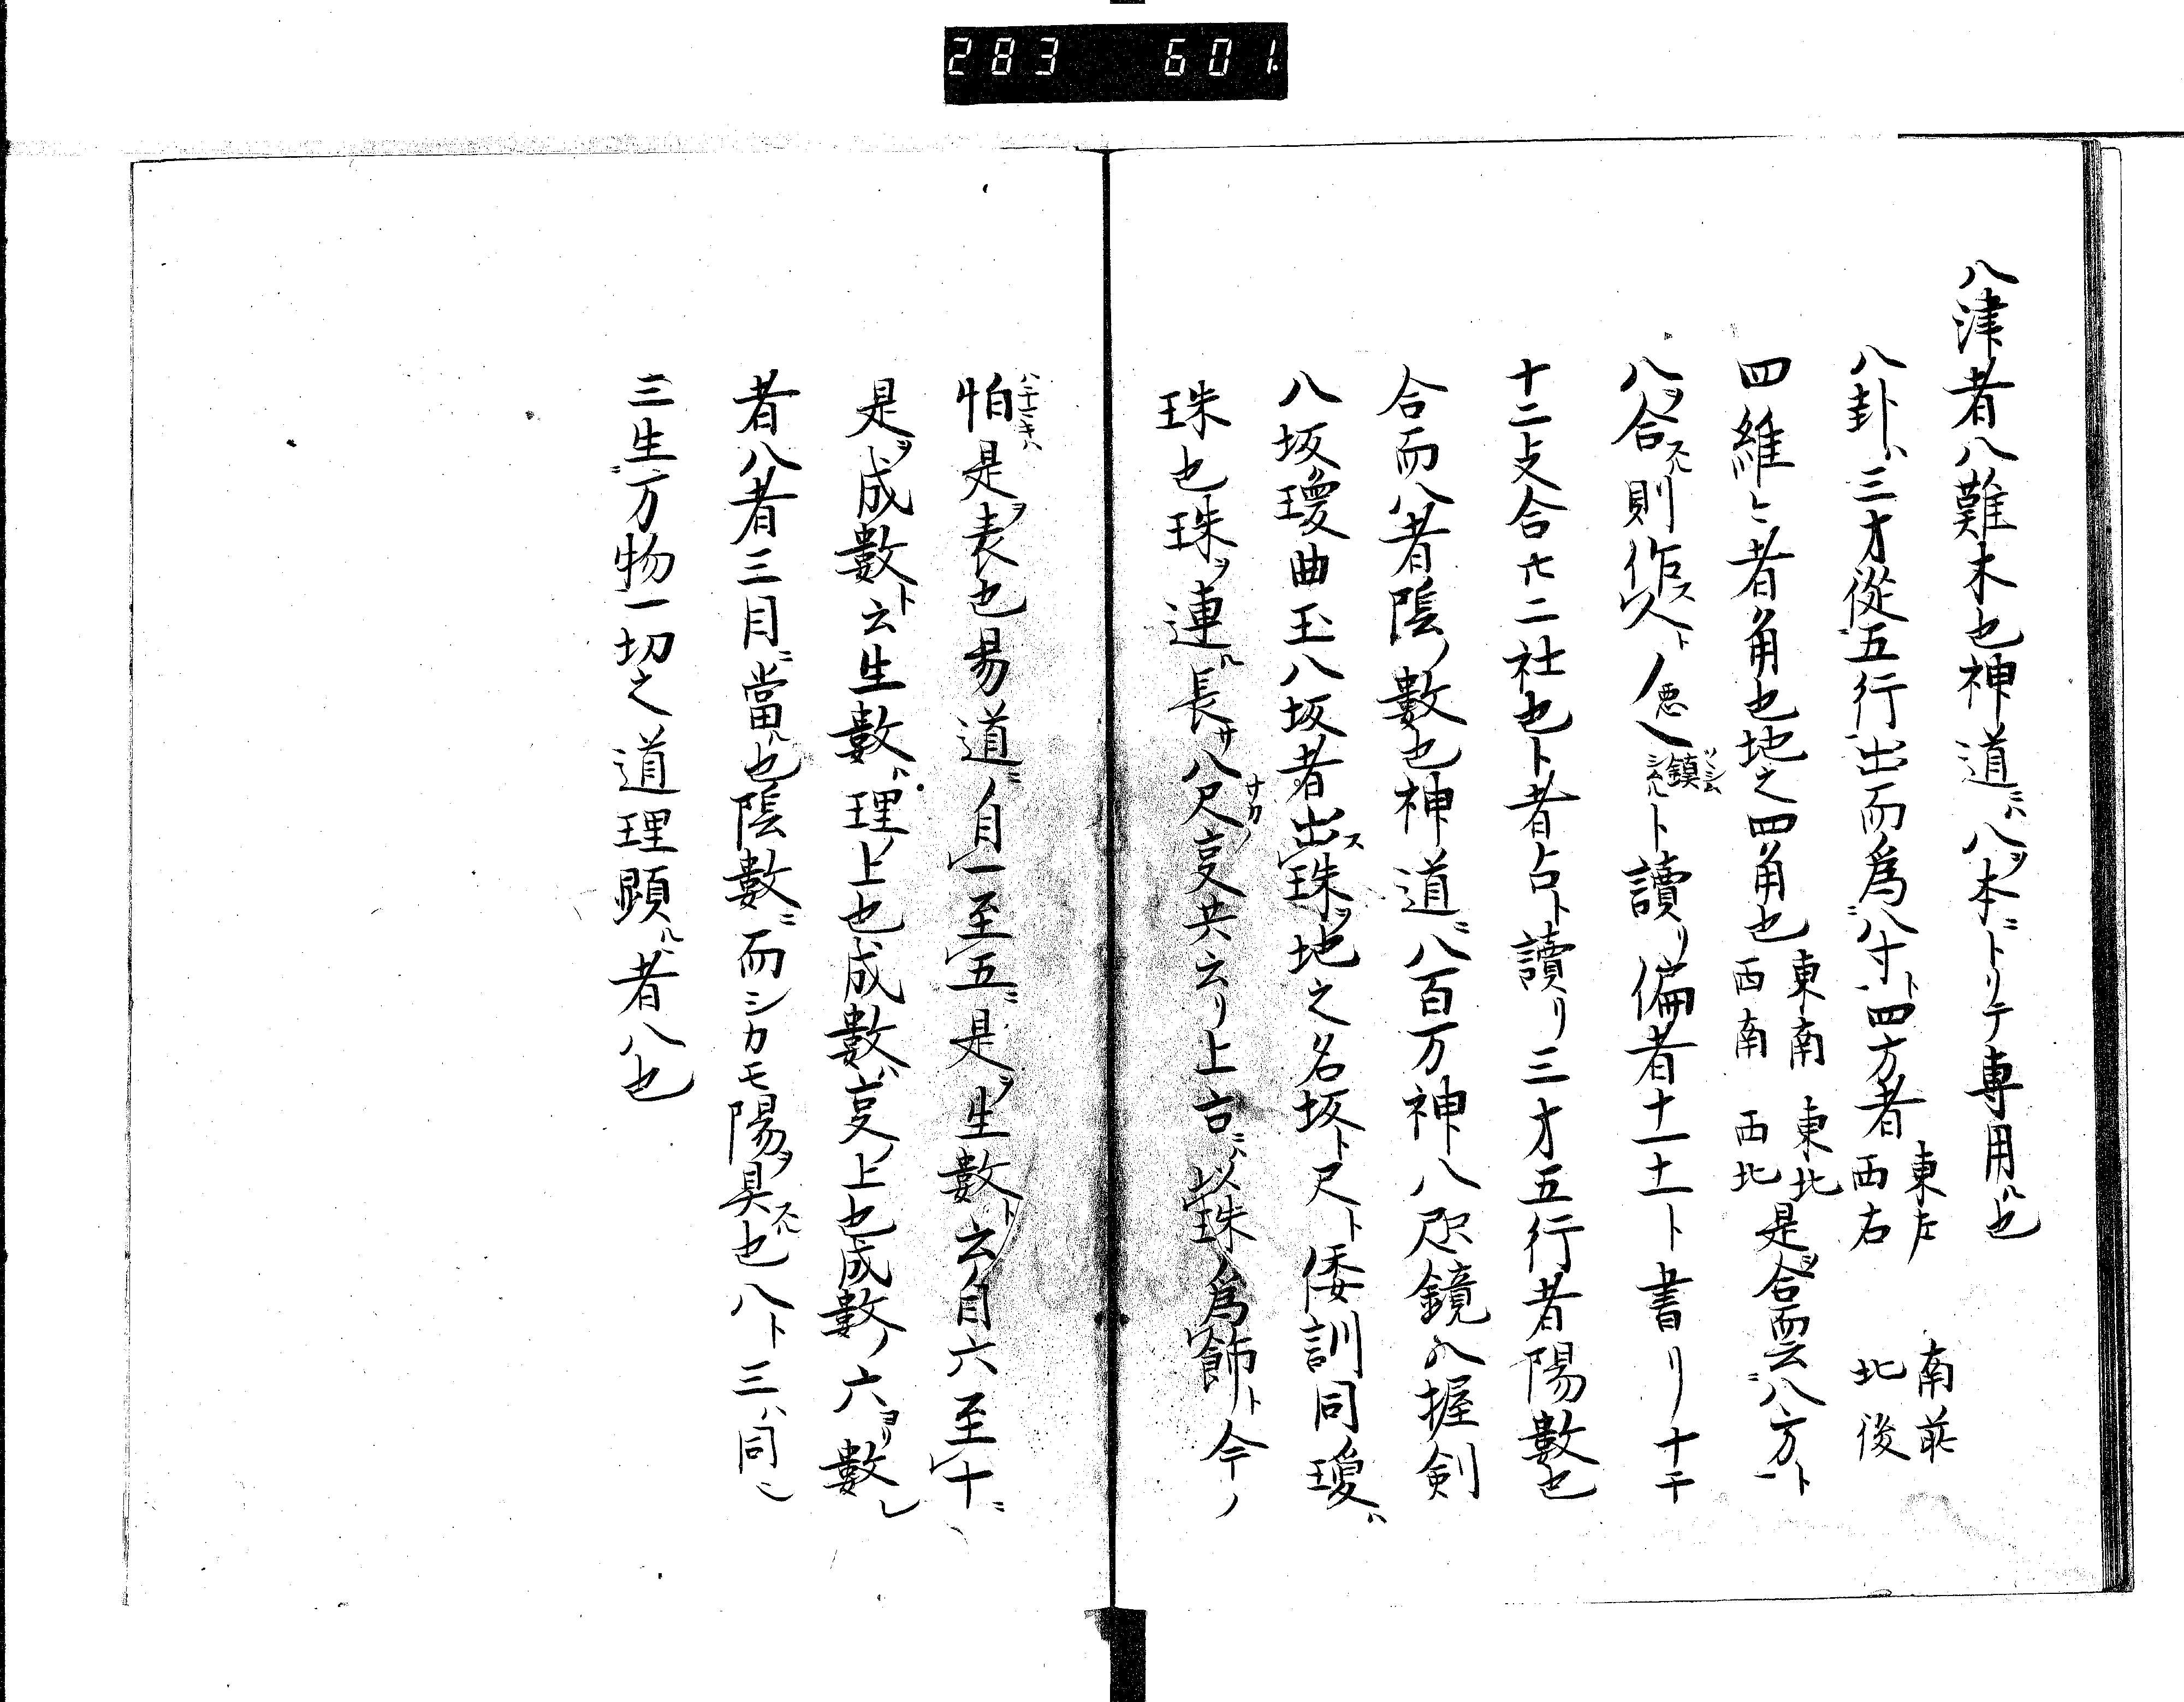 283 601
八津者八難木也神道ニハ八ヲ本ニトリテ専用ル也
八卦ハ三才從五行出而爲八寸ト四方者 東左 西右 南前 北後
四維〻者角也地之四角也 東南 西南 東北 西北 是ヲ合而云八方ト
八ヲ合スル則作ス ト 讀リ偏者十一土ト書リ十干
十二支合廿二社也卜者占ト讀リ三才五行者陽數也
合而八者陰ノ數也神道ニ八百万神八咫鏡八握剣
八坂瓊曲玉八坂者出ス珠ヲ地之名坂ト尺ト倭訓同瓊ハ
珠也珠ヲ連ル長サ八尺 共云リ上古ニハ以珠ヲ爲飾ト今ノ
怕 是ヲ表也易道ニ自一至五ニ是ヲ生數ト云自六至十ニ
是ヲ成數ト云生數ハ理ノ上也成數ハ 上也成數ノ六ヨリ數レ
者八者三目ニ當ル也陰數ニ而シカモ陽ヲ具スル也八ト三ハ同シ
三生ニ万物一切之道理顕ル者八也